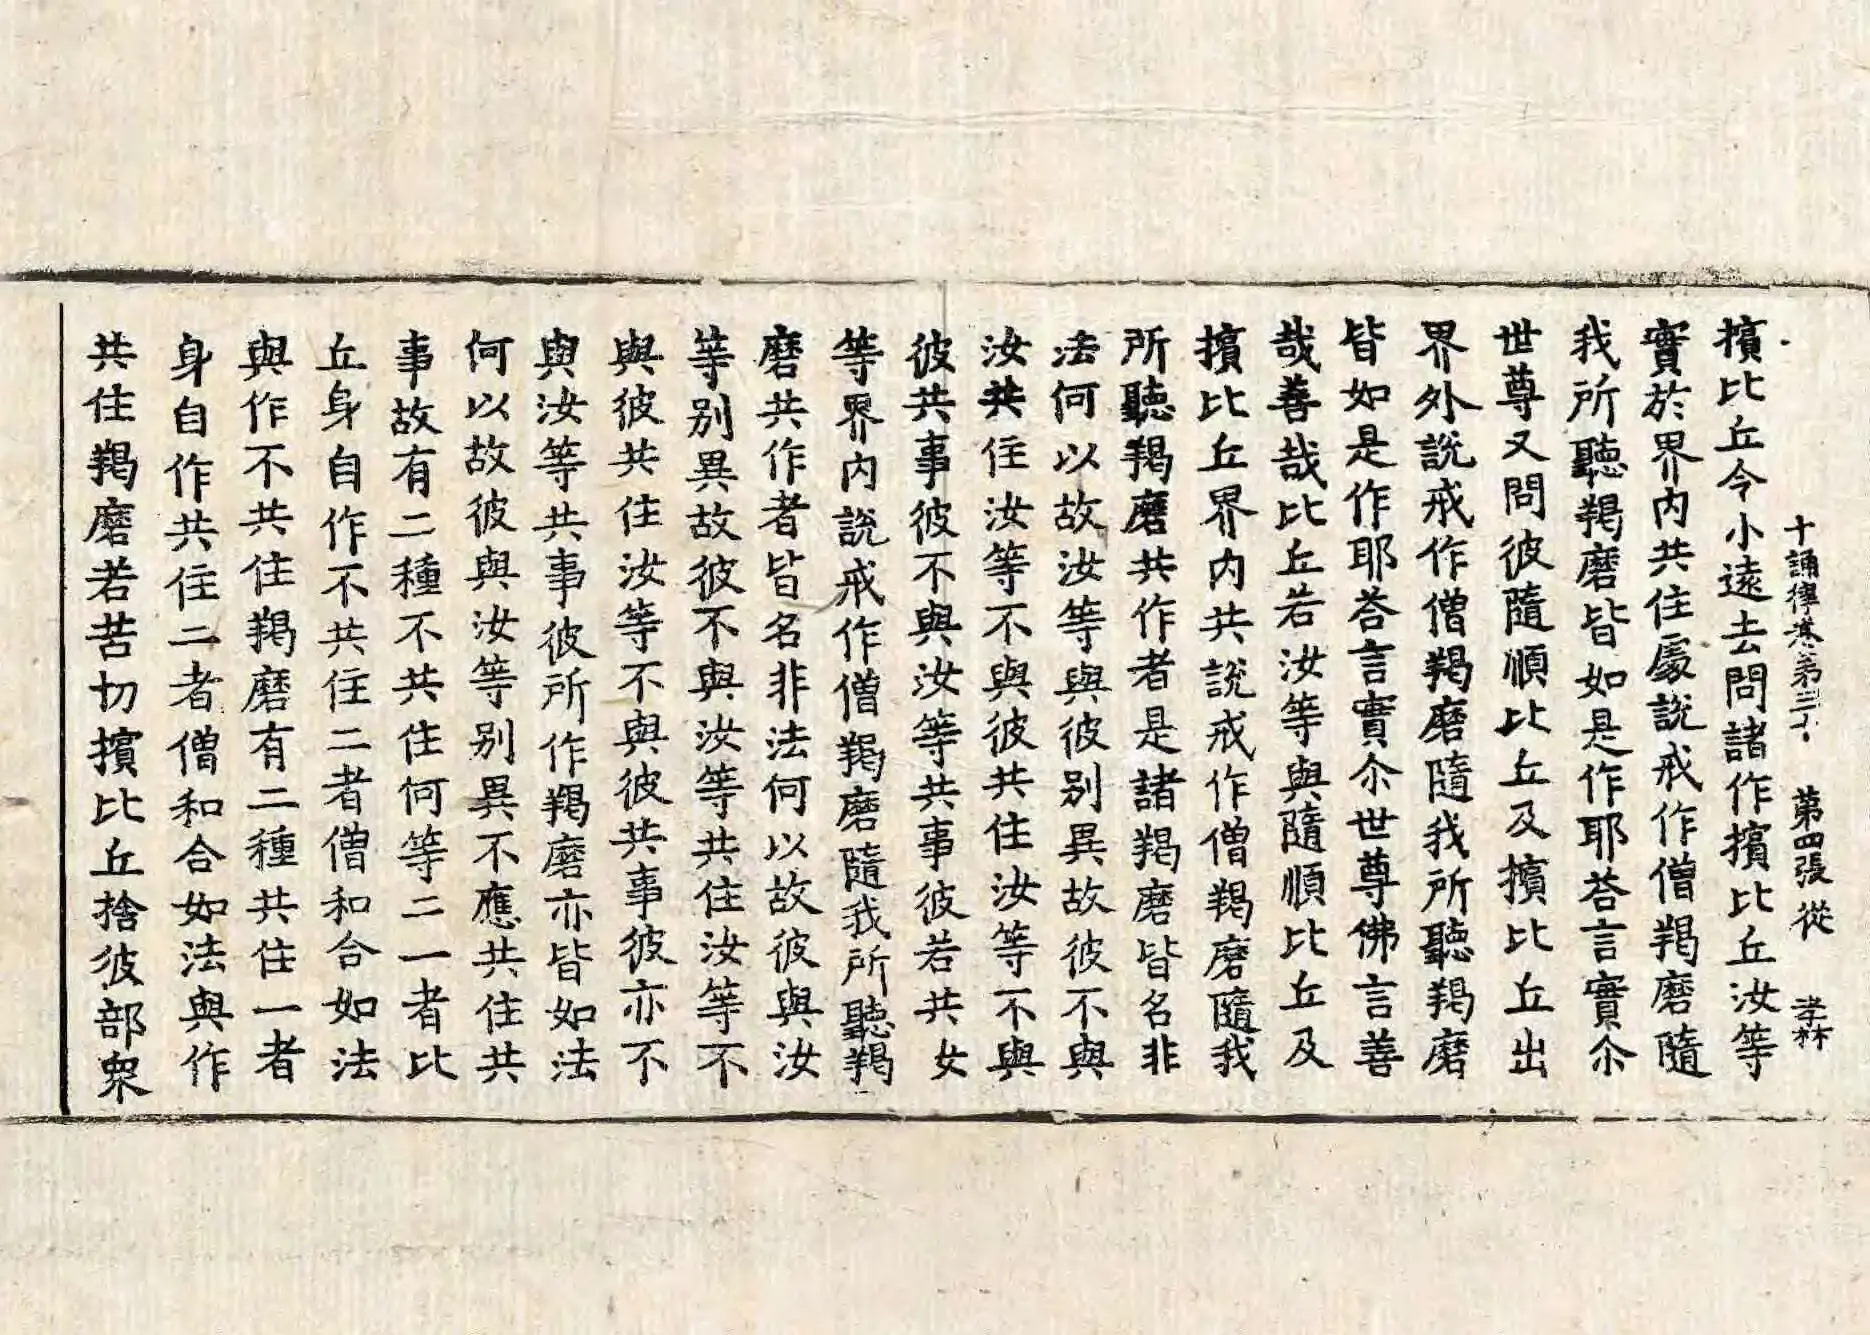 十誦律卷第三十 第四張 從 孝林
擯比丘今小遠去問諸作擯比丘汝等
實於界內共住處說戒作僧羯磨隨
我所聽羯磨皆如是作耶荅言實尒
世尊又問彼隨順比丘及擯比丘出
界外說戒作僧羯磨隨我所聽羯磨
皆如是作耶荅言實尒世尊佛言善
哉善哉比丘若汝等與隨順比丘及
擯比丘界內共說戒作僧羯磨隨我
所聽羯磨共作者是諸羯磨皆名非
法何以故汝等與彼別異故彼不與
汝共住汝等不與彼共住汝等不與
彼共事彼不與汝等共事彼若共女
等界內說戒作僧羯磨隨我所聽羯
磨共作者皆名非法何以故彼與汝
等別異故彼不與汝等共住汝等不
與彼共住汝等不與彼共事彼亦不
與汝等共事彼所作羯磨亦皆如法
何以故彼與汝等別異不應共住共
事故有二種不共住何等二一者比
丘身自作不共住二者僧和合如法
與作不共住羯磨有二種共住一者
身自作共住二者僧和合如法與作
共住羯磨若苦切擯比丘捨彼部眾